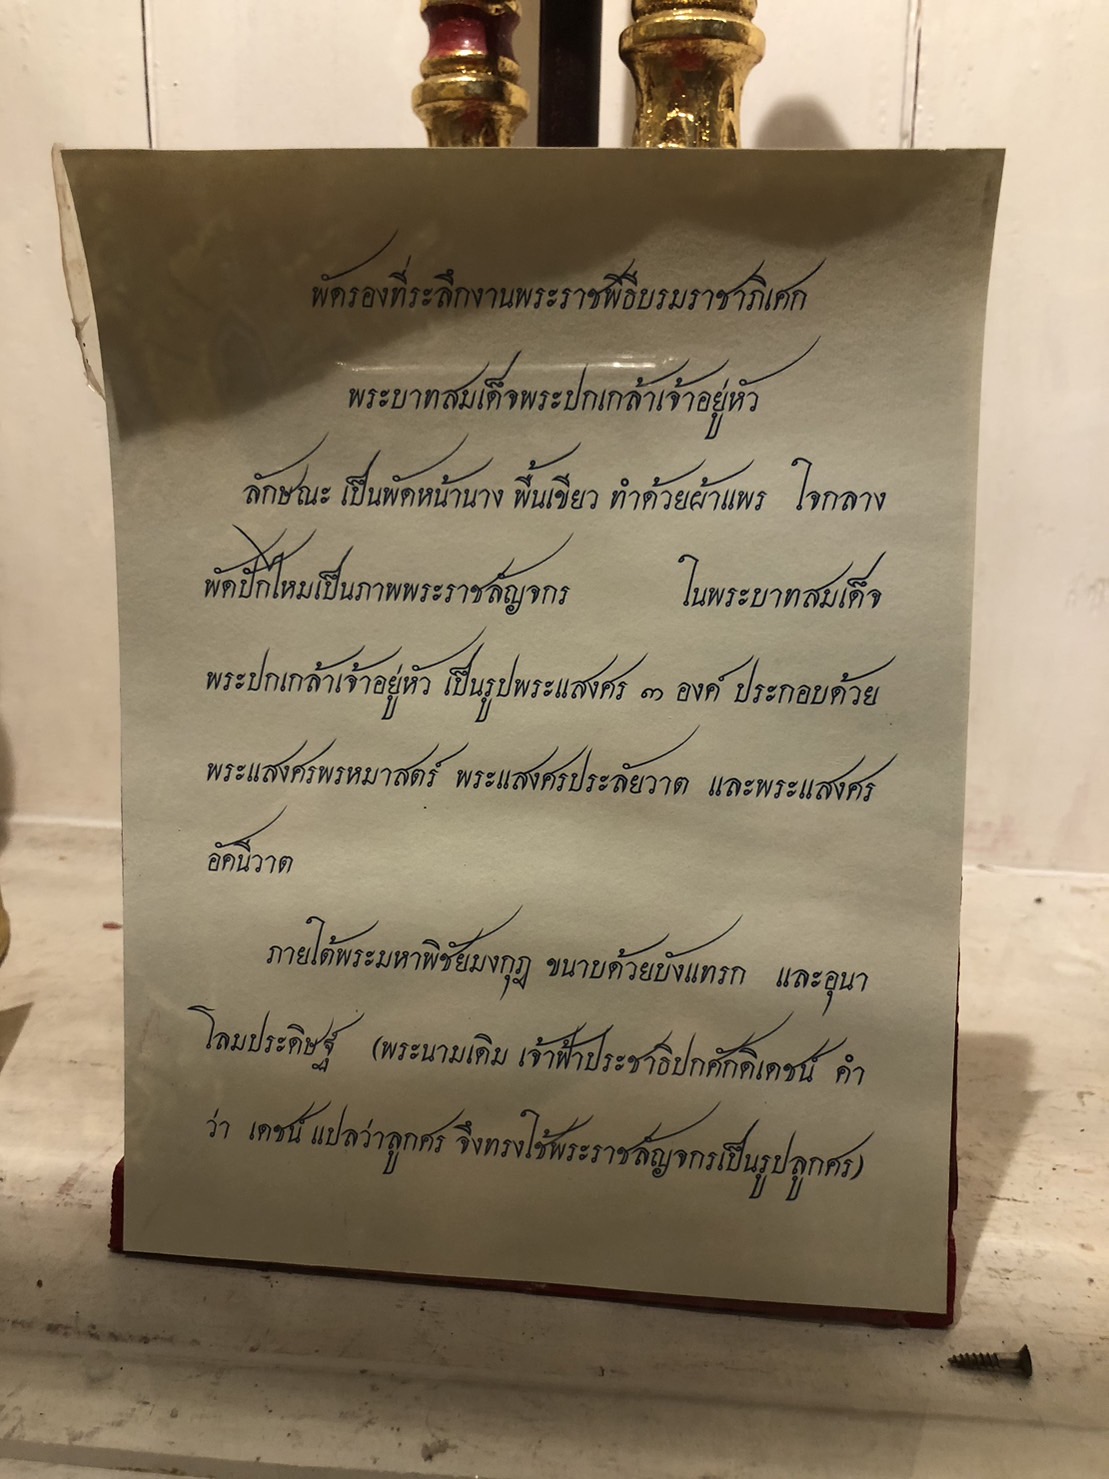 พัดรองที่ระลึกงานพระราชพิธีบรมราชาภิเศก
พระบาทสมเด็จพระปกเกล้าเจ้าอยู่หัว
ลักษณะ เป็นพัดหน้านาง พื้นเขียว ทำด้วยผ้าแพร ใจกลาง
พัดปักไหมเป็นภาพพระราชลัญจกร ในพระบาทสมเด็จ
พระปกเกล้าเจ้าอยู่หัว เป็นรูปพระแสงศร ๓ องค์ ประกอบด้วย
พระแสงศรพรหมาสตร์ พระแสงศรประลัยวาต และพระแสงศร
อัคนีวาต
ภายใต้พระมหาพิชัยมงกุฎ ขนาบด้วยบังแทรก และอุนา
โลมประดิษฐ์ (พระนามเดิม เจ้าฟ้าประชาธิปกศักดิเดชน์ คำ
ว่า เดชน์ แปลว่าลูกศร จึงทรงใช้พระราชลัญจกรเป็นรูปลูกศร)